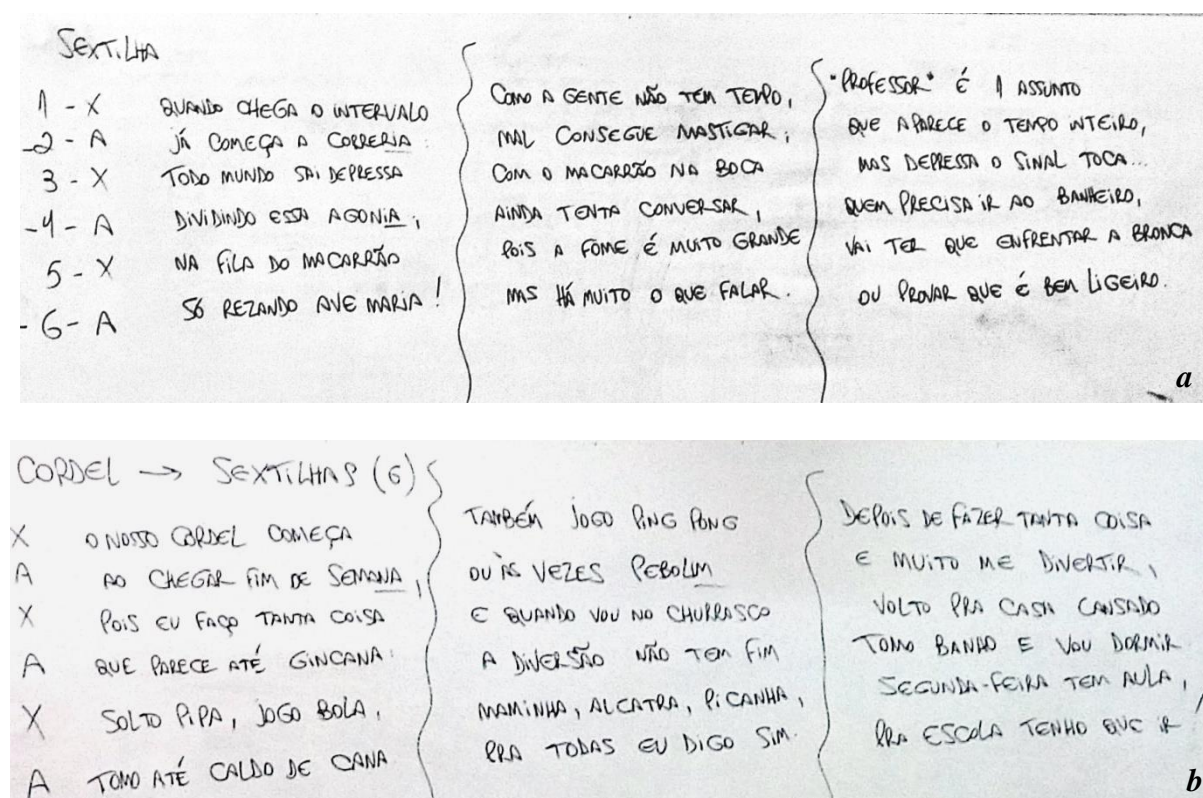 SEXTILHA
1 - X QUANDO CHEGA O INTERVALO
2 - A JÁ COMEÇA A CORRERIA:
3 - X TODO MUNDO SAI DEPRESSA
4 - A DIVIDINDO ESSA AGONIA,
5 - X NA FILA DO MACARRÃO
6 - A SÓ REZANDO AVE MARIA!
COMO A GENTE NÃO TEM TEMPO,
MAL CONSEGUE MASTIGAR,
COM O MACARRÃO NA BOCA
AINDA TENTA CONVERSAR,
POIS A FOME É MUITO GRANDE
MAS HÁ MUITO O QUE FALAR.
"PROFESSOR" É 1 ASSUNTO
QUE APARECE O TEMPO INTEIRO,
MAS DEPRESSA O SINAL TOCA...
QUEM PRECISA IR AO BANHEIRO,
VAI TER QUE ENFRENTAR A BRONCA
OU PROVAR QUE É BEM LIGEIRO.
a
CORDEL → SEXTILHAS (6)
X O NOSSO CORDEL COMEÇA
A AO CHEGAR FIM DE SEMANA,
X POIS EU FAÇO TANTA COISA
A QUE PARECE ATÉ GINCANA:
X SOLTO PIPA, JOGO BOLA,
A TOMO ATÉ CALDO DE CANA
TAMBÉM JOGO PING PONG
OU ÀS VEZES PEBOLIM
E QUANDO VOU NO CHURRASCO
A DIVERSÃO NÃO TEM FIM
MAMINHA, ALCATRA, PICANHA,
PRA TODAS EU DIGO SIM.
DEPOIS DE FAZER TANTA COISA
E MUITO ME DIVERTIR,
VOLTO PRA CASA CANSADO
TOMO BANHO E VOU DORMIR
SEGUNDA-FEIRA TEM AULA,
PRA ESCOLA TENHO QUE IR
b